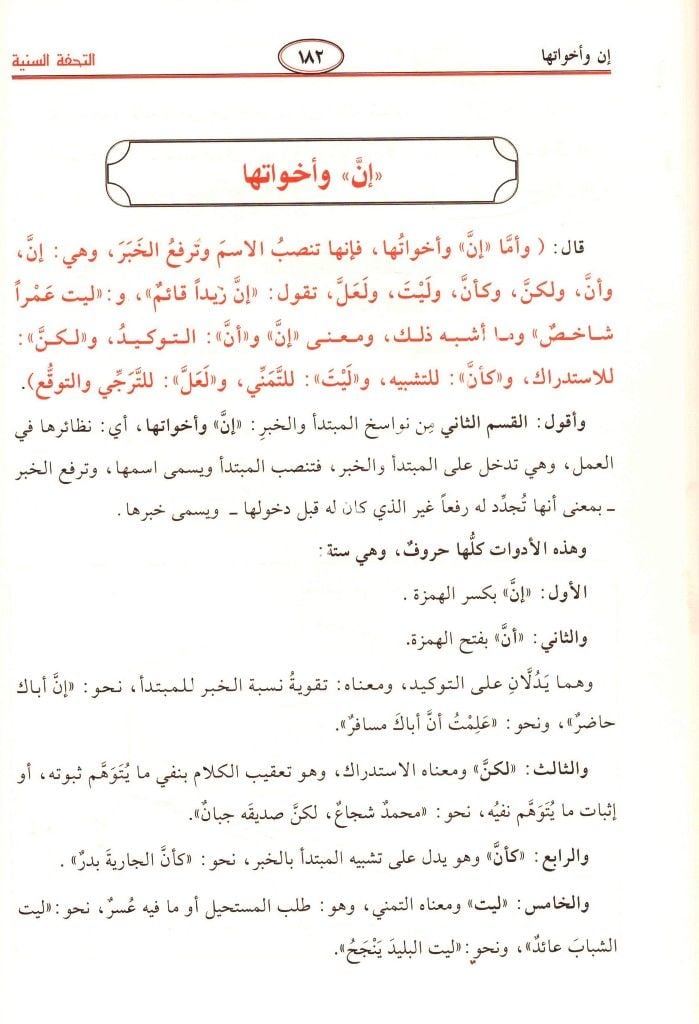 إن وأخواتها ١٨٢ التحفة السنية
«إنَّ» وأخواتها
قال: ( وأمَّا «إنَّ» وأخواتُها، فإنها تنصبُ الاسمَ وتَرفعُ الخَبَرَ، وهي: إنَّ،
وأنَّ، ولكنَّ، وكأنَّ، ولَيْتَ، ولَعَلَّ، تقول: «إنَّ زيداً قائمٌ»، و: «ليت عَمْراً
شاخصٌ» وما أشبه ذلك، ومعنى «إنَّ» و«أنَّ»: التوكيدُ، و«لكنَّ»:
للاستدراك، و«كأنَّ»: للتشبيه، و«لَيْتَ»: للتَّمَنِّي، و«لَعَلَّ»: للتَّرَجِّي والتوقُّع).
وأقول: القسم الثاني مِن نواسخ المبتدأ والخبرِ: «إنَّ» وأخواتها، أي: نظائرها في
العمل، وهي تدخل على المبتدأ والخبر، فتنصب المبتدأ ويسمى اسمها، وترفع الخبر
ـ بمعنى أنها تُجدِّد له رفعاً غير الذي كان له قبل دخولها ـ ويسمى خبرها.
وهذه الأدوات كلُّها حروفٌ، وهي ستة:
الأول: «إنَّ» بكسر الهمزة.
والثاني: «أنَّ» بفتح الهمزة.
وهما يَدُلَّانِ على التوكيد، ومعناه: تقويةُ نسبة الخبر للمبتدأ، نحو: «إنَّ أباك
حاضرٌ»، ونحو: «عَلِمْتُ أنَّ أباكَ مسافرٌ».
والثالث: «لكنَّ» ومعناه الاستدراك، وهو تعقيب الكلام بنفي ما يُتَوَهَّم ثبوته، أو
إثبات ما يُتَوَهَّم نفيُه، نحو: «محمدٌ شجاعٌ، لكنَّ صديقَه جبانٌ».
والرابع: «كأنَّ» وهو يدل على تشبيه المبتدأ بالخبر، نحو: «كأنَّ الجاريةَ بدرٌ».
والخامس: «ليت» ومعناه التمني، وهو: طلب المستحيل أو ما فيه عُسرٌ، نحو: «ليت
الشبابَ عائدٌ»، ونحو: «ليت البليدَ يَنْجَحُ».